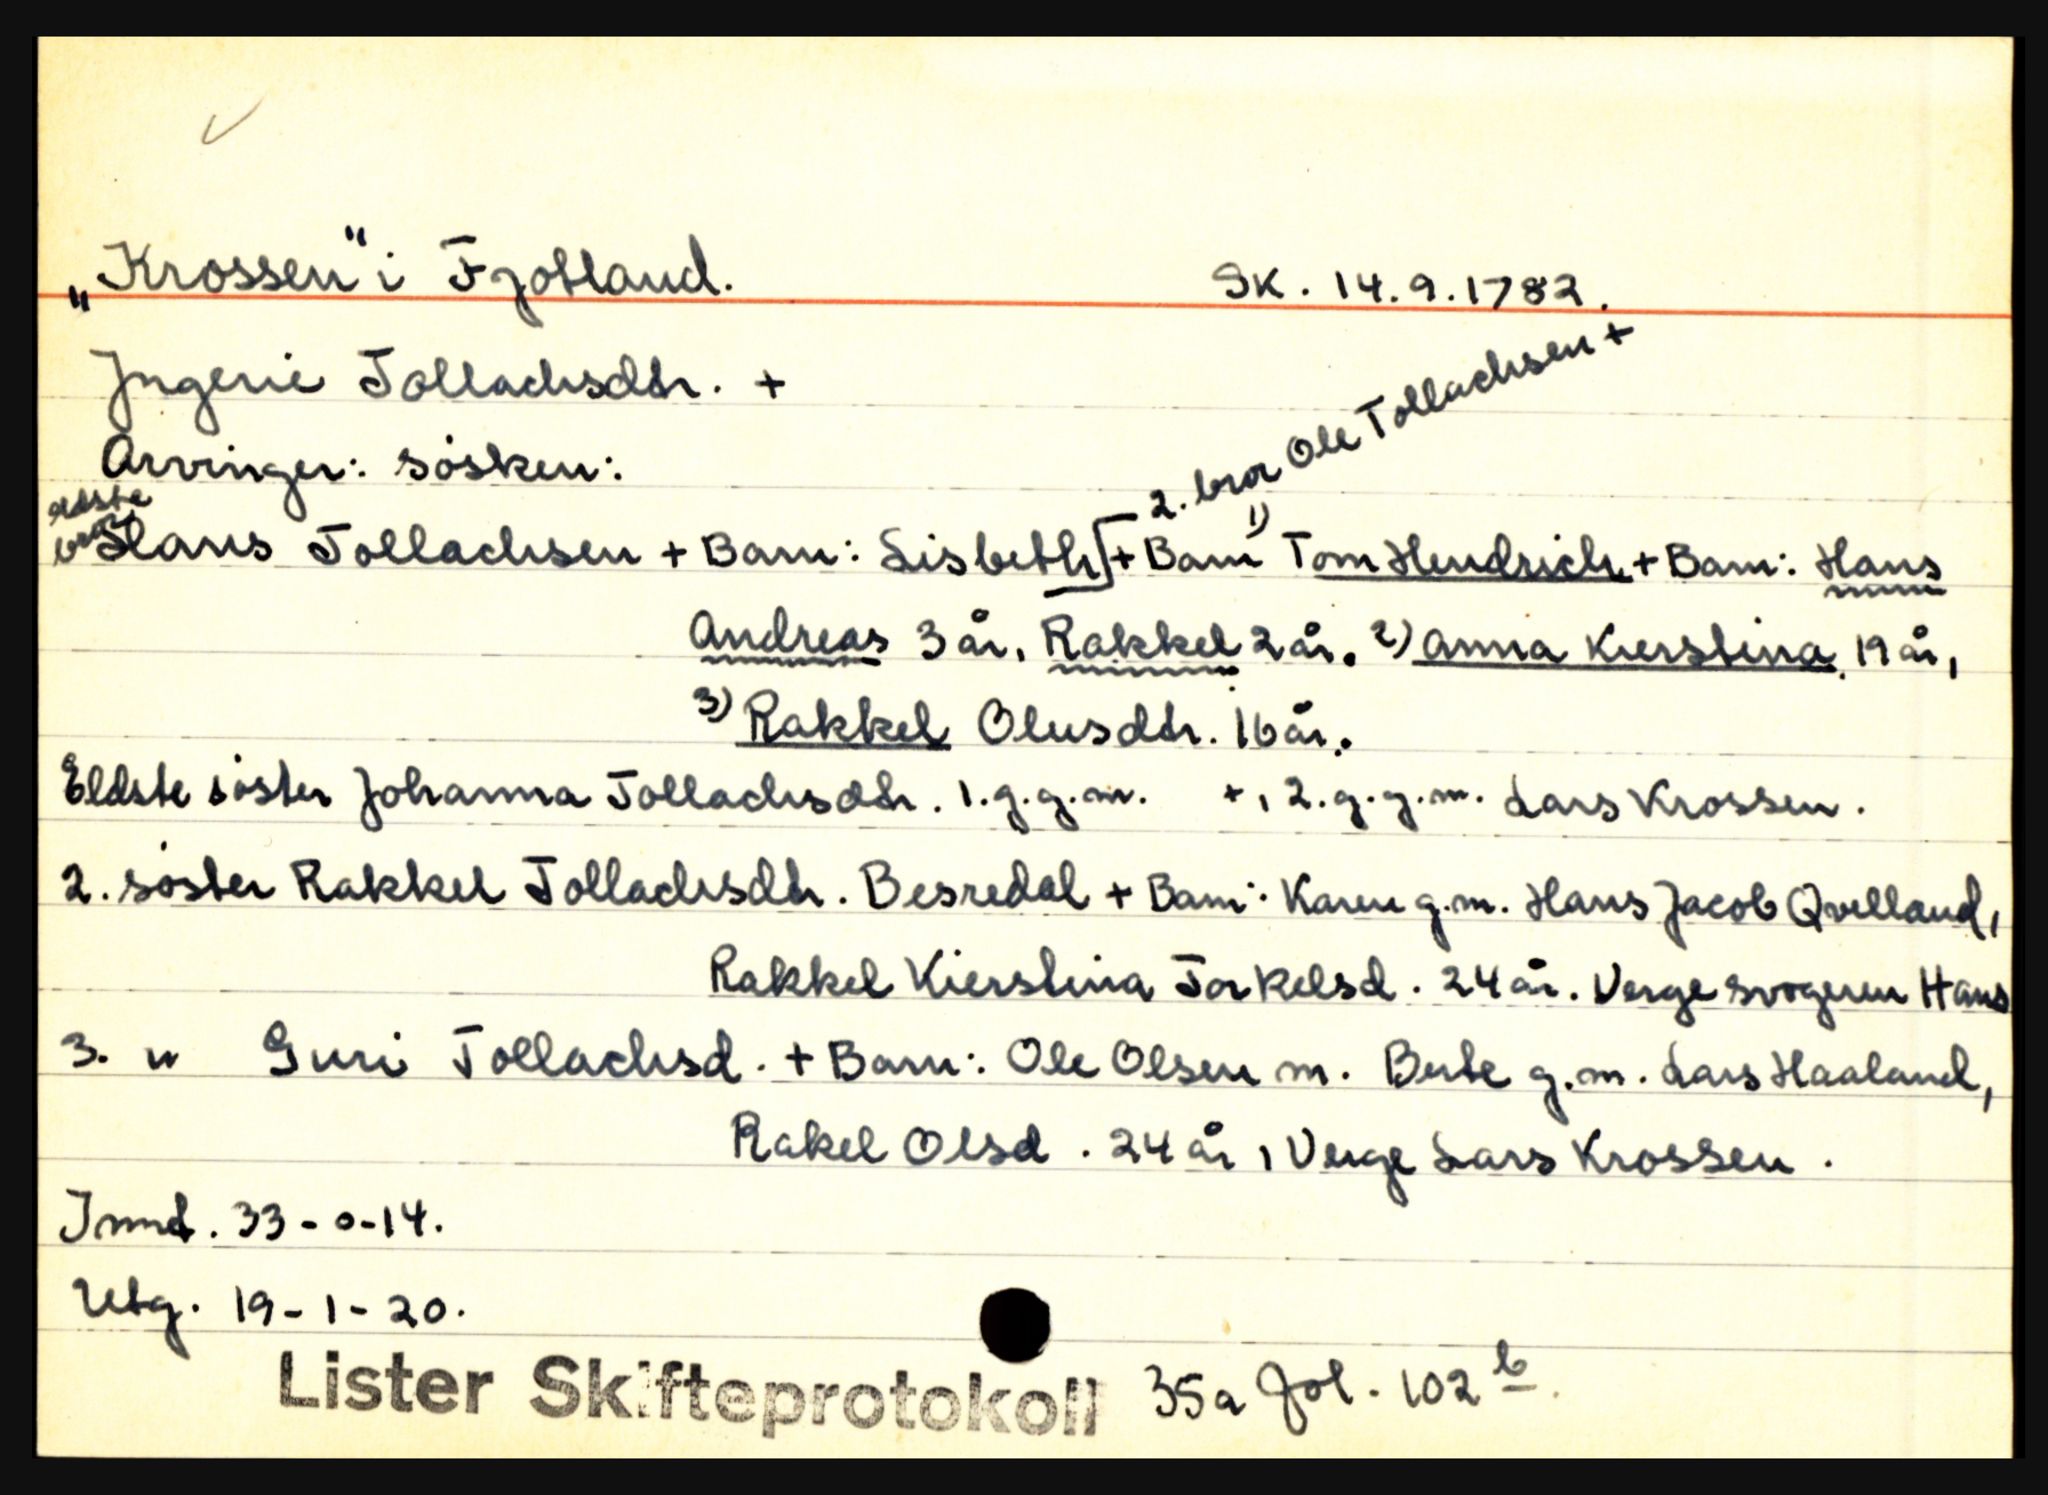 „Krossen" i Fjotland. SK. 14.9.1782.
Jngerie Tollachsdtr. +
Arvinger: søsken:
eldste bror Hans Tollachsen + Barn: Lisbeth [2. bror Ole Tollachsen +
+ Barn 1) Tom Hendrich + Barn: Hans
Andreas 3 år, Rakkel 2 år. 2) Anna Kierstina 19 år,
3) Rakkel Olusdtr. 16 år.
Eldste søster Johanna Tollachsdtr. 1.g.g.m. +, 2.g.g.m. Lars Krossen.
2. søster Rakkel Tollachsdtr. Besredal + Barn: Karen g.m. Hans Jacob Qvelland,
Rakkel Kierstina Torkelsd. 24 år. Verge svogeren Hans
3. " Guri Tollachsd. + Barn: Ole Olsen m. Berte g.m. Lars Haaland,
Rakel Olsd. 24 år, Verge Lars Krossen.
Innt. 33-0-14.
Utg. 19-1-20.
Lister Skifteprotokoll 35a fol. 102 b.